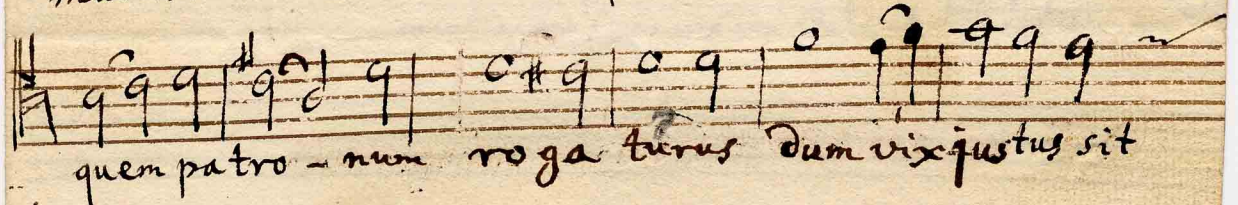 quem patro - num roga turus dum vix justus sit